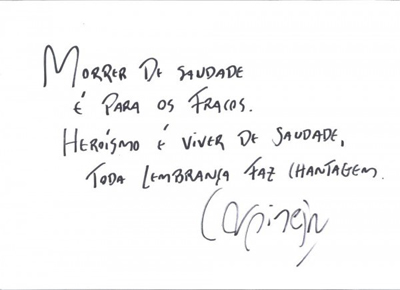 MORRER DE SAUDADE
É PARA OS FRACOS.
HEROÍSMO É VIVER DE SAUDADE,
TODA LEMBRANÇA FAZ CHANTAGEM.
Carpinejar